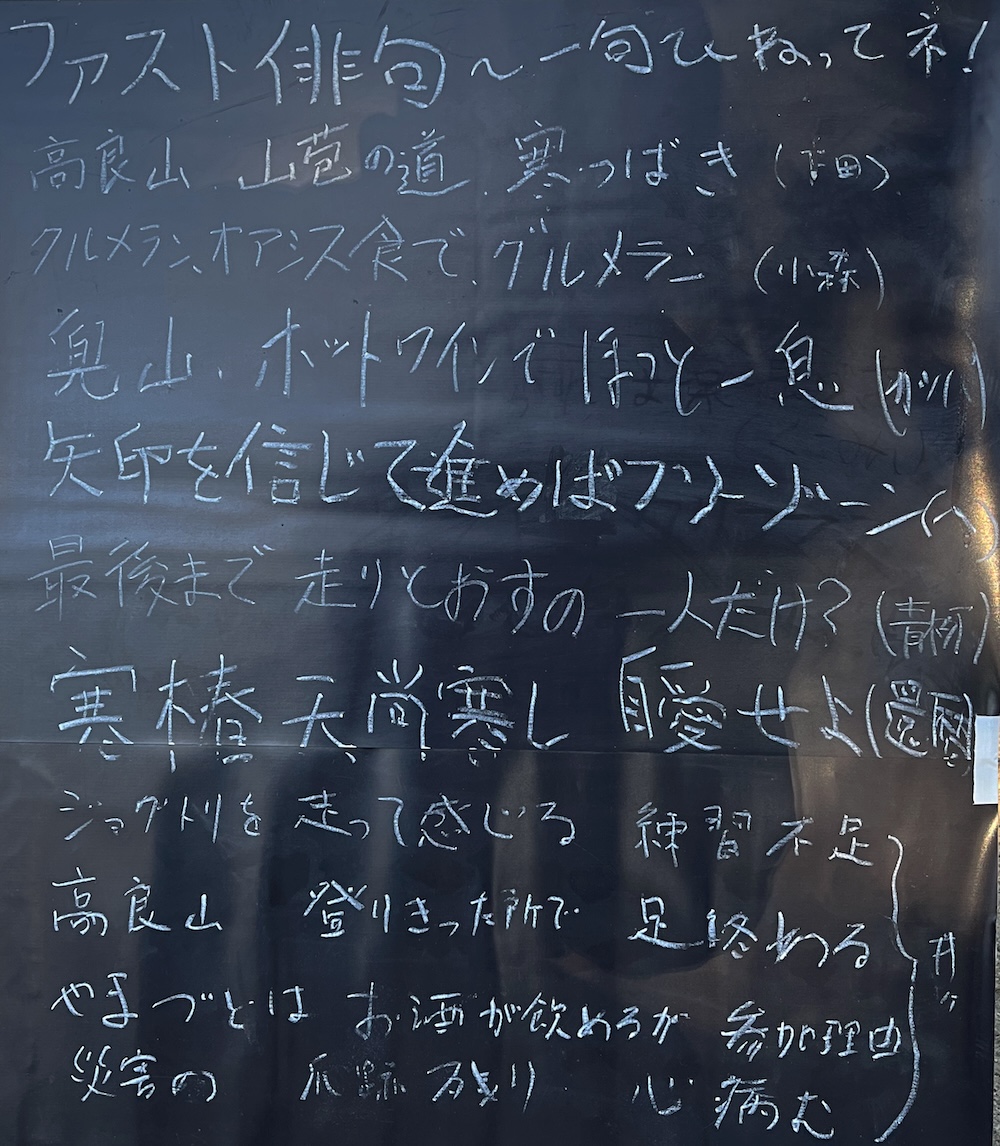 ファスト俳句～一句ひねってネ!
高良山 山苞の道 寒つばき (下田)
クルメラン、オアシス食で、グルメラン (小森)
兜山、ホットワインでほっと一息 (カッパ)
矢印を信じて進めばフリーゾーン
最後まで 走りとおすの 一人だけ? (青柳)
寒椿 天尚寒し 自愛せよ
ジョグトリを 走って感じる 練習不足
高良山 登りきった所で 足終わる
やまづとは お酒が飲めるが 参加理由
災害の 爪跡残り 心病む